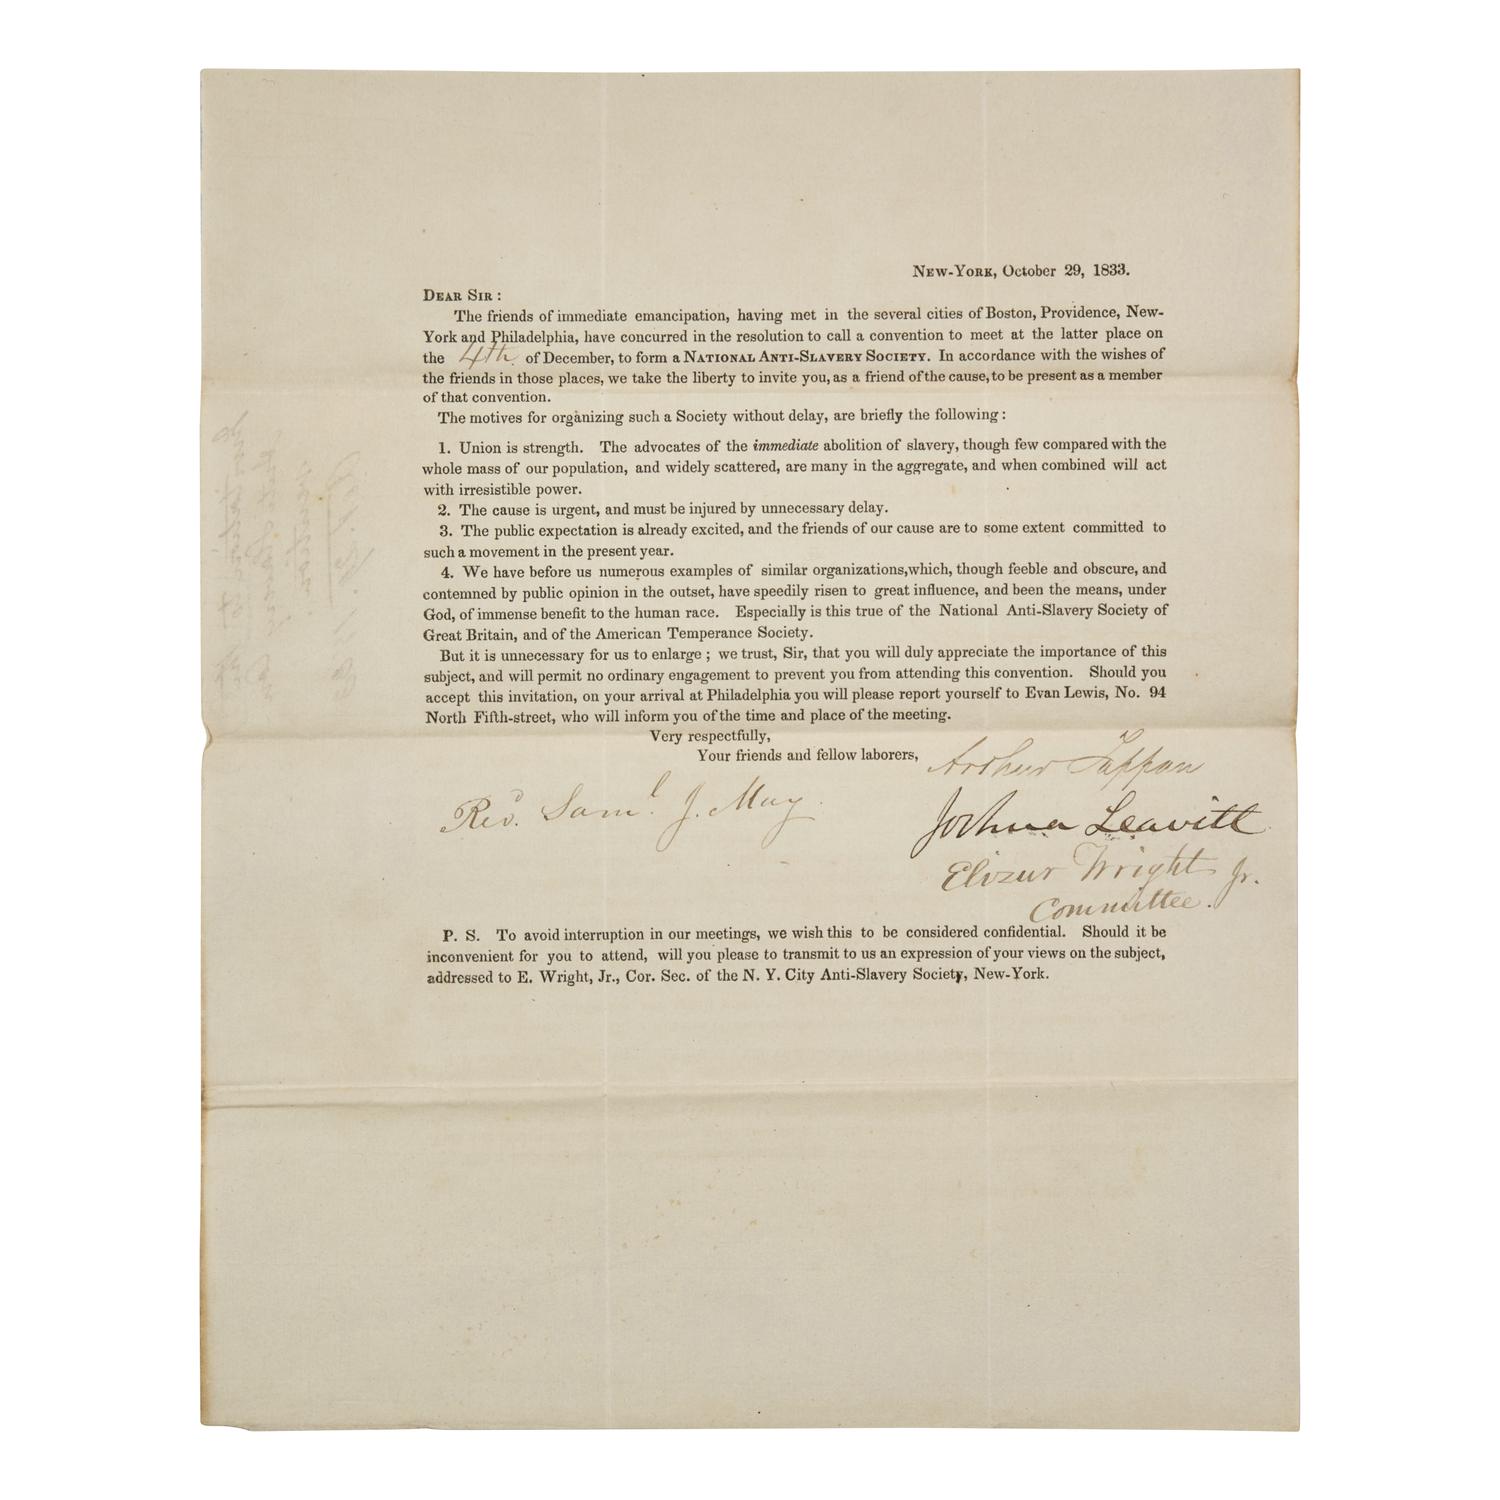 New-York, October 29, 1833.
Dear Sir :
The friends of immediate emancipation, having met in the several cities of Boston, Providence, New-
York and Philadelphia, have concurred in the resolution to call a convention to meet at the latter place on
the 4th of December, to form a National Anti-Slavery Society. In accordance with the wishes of
the friends in those places, we take the liberty to invite you, as a friend of the cause, to be present as a member
of that convention.
The motives for organizing such a Society without delay, are briefly the following :
1. Union is strength. The advocates of the immediate abolition of slavery, though few compared with the
whole mass of our population, and widely scattered, are many in the aggregate, and when combined will act
with irresistible power.
2. The cause is urgent, and must be injured by unnecessary delay.
3. The public expectation is already excited, and the friends of our cause are to some extent committed to
such a movement in the present year.
4. We have before us numerous examples of similar organizations,which, though feeble and obscure, and
contemned by public opinion in the outset, have speedily risen to great influence, and been the means, under
God, of immense benefit to the human race. Especially is this true of the National Anti-Slavery Society of
Great Britain, and of the American Temperance Society.
But it is unnecessary for us to enlarge ; we trust, Sir, that you will duly appreciate the importance of this
subject, and will permit no ordinary engagement to prevent you from attending this convention. Should you
accept this invitation, on your arrival at Philadelphia you will please report yourself to Evan Lewis, No. 94
North Fifth-street, who will inform you of the time and place of the meeting.
Very respectfully,
Your friends and fellow laborers,
Arthur Tappan
Revd. Saml. J. May.
Joshua Leavitt
Elizur Wright Jr.
Committee.
P. S. To avoid interruption in our meetings, we wish this to be considered confidential. Should it be
inconvenient for you to attend, will you please to transmit to us an expression of your views on the subject,
addressed to E. Wright, Jr., Cor. Sec. of the N. Y. City Anti-Slavery Society, New-York.